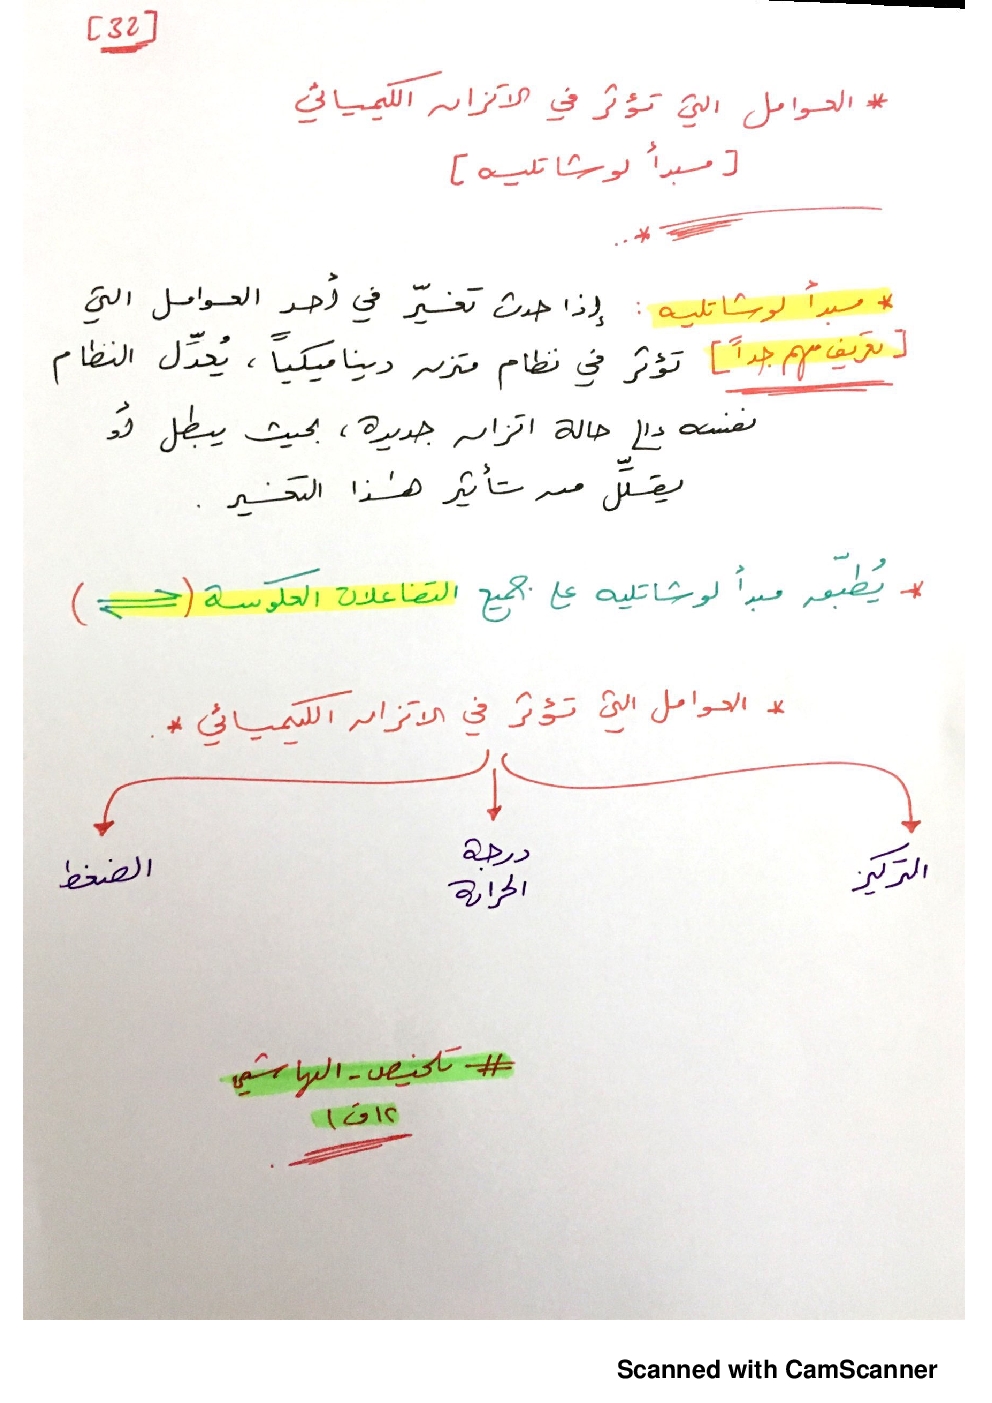 [32]
* العوامل التي تؤثر في الاتزان الكيميائي
[مبدأ لوشاتلييه]
* مبدأ لوشاتلييه : إذا حدث تغيّر في أحد العوامل التي
[تعريف مهم جداً] تؤثر في نظام متزن ديناميكياً، يُعدِّل النظام
نفسه إلى حالة اتزان جديدة، بحيث يبطل أو
يقلِّل من تأثير هذا التغير .
* يُطبّق مبدأ لوشاتلييه على جميع التفاعلات العكوسة (⇌)
* العوامل التي تؤثر في الاتزان الكيميائي *
التركيز
درجة
الحرارة
الضغط
# تلخيص - الهاشمي
١٢ ف ١
Scanned with CamScanner